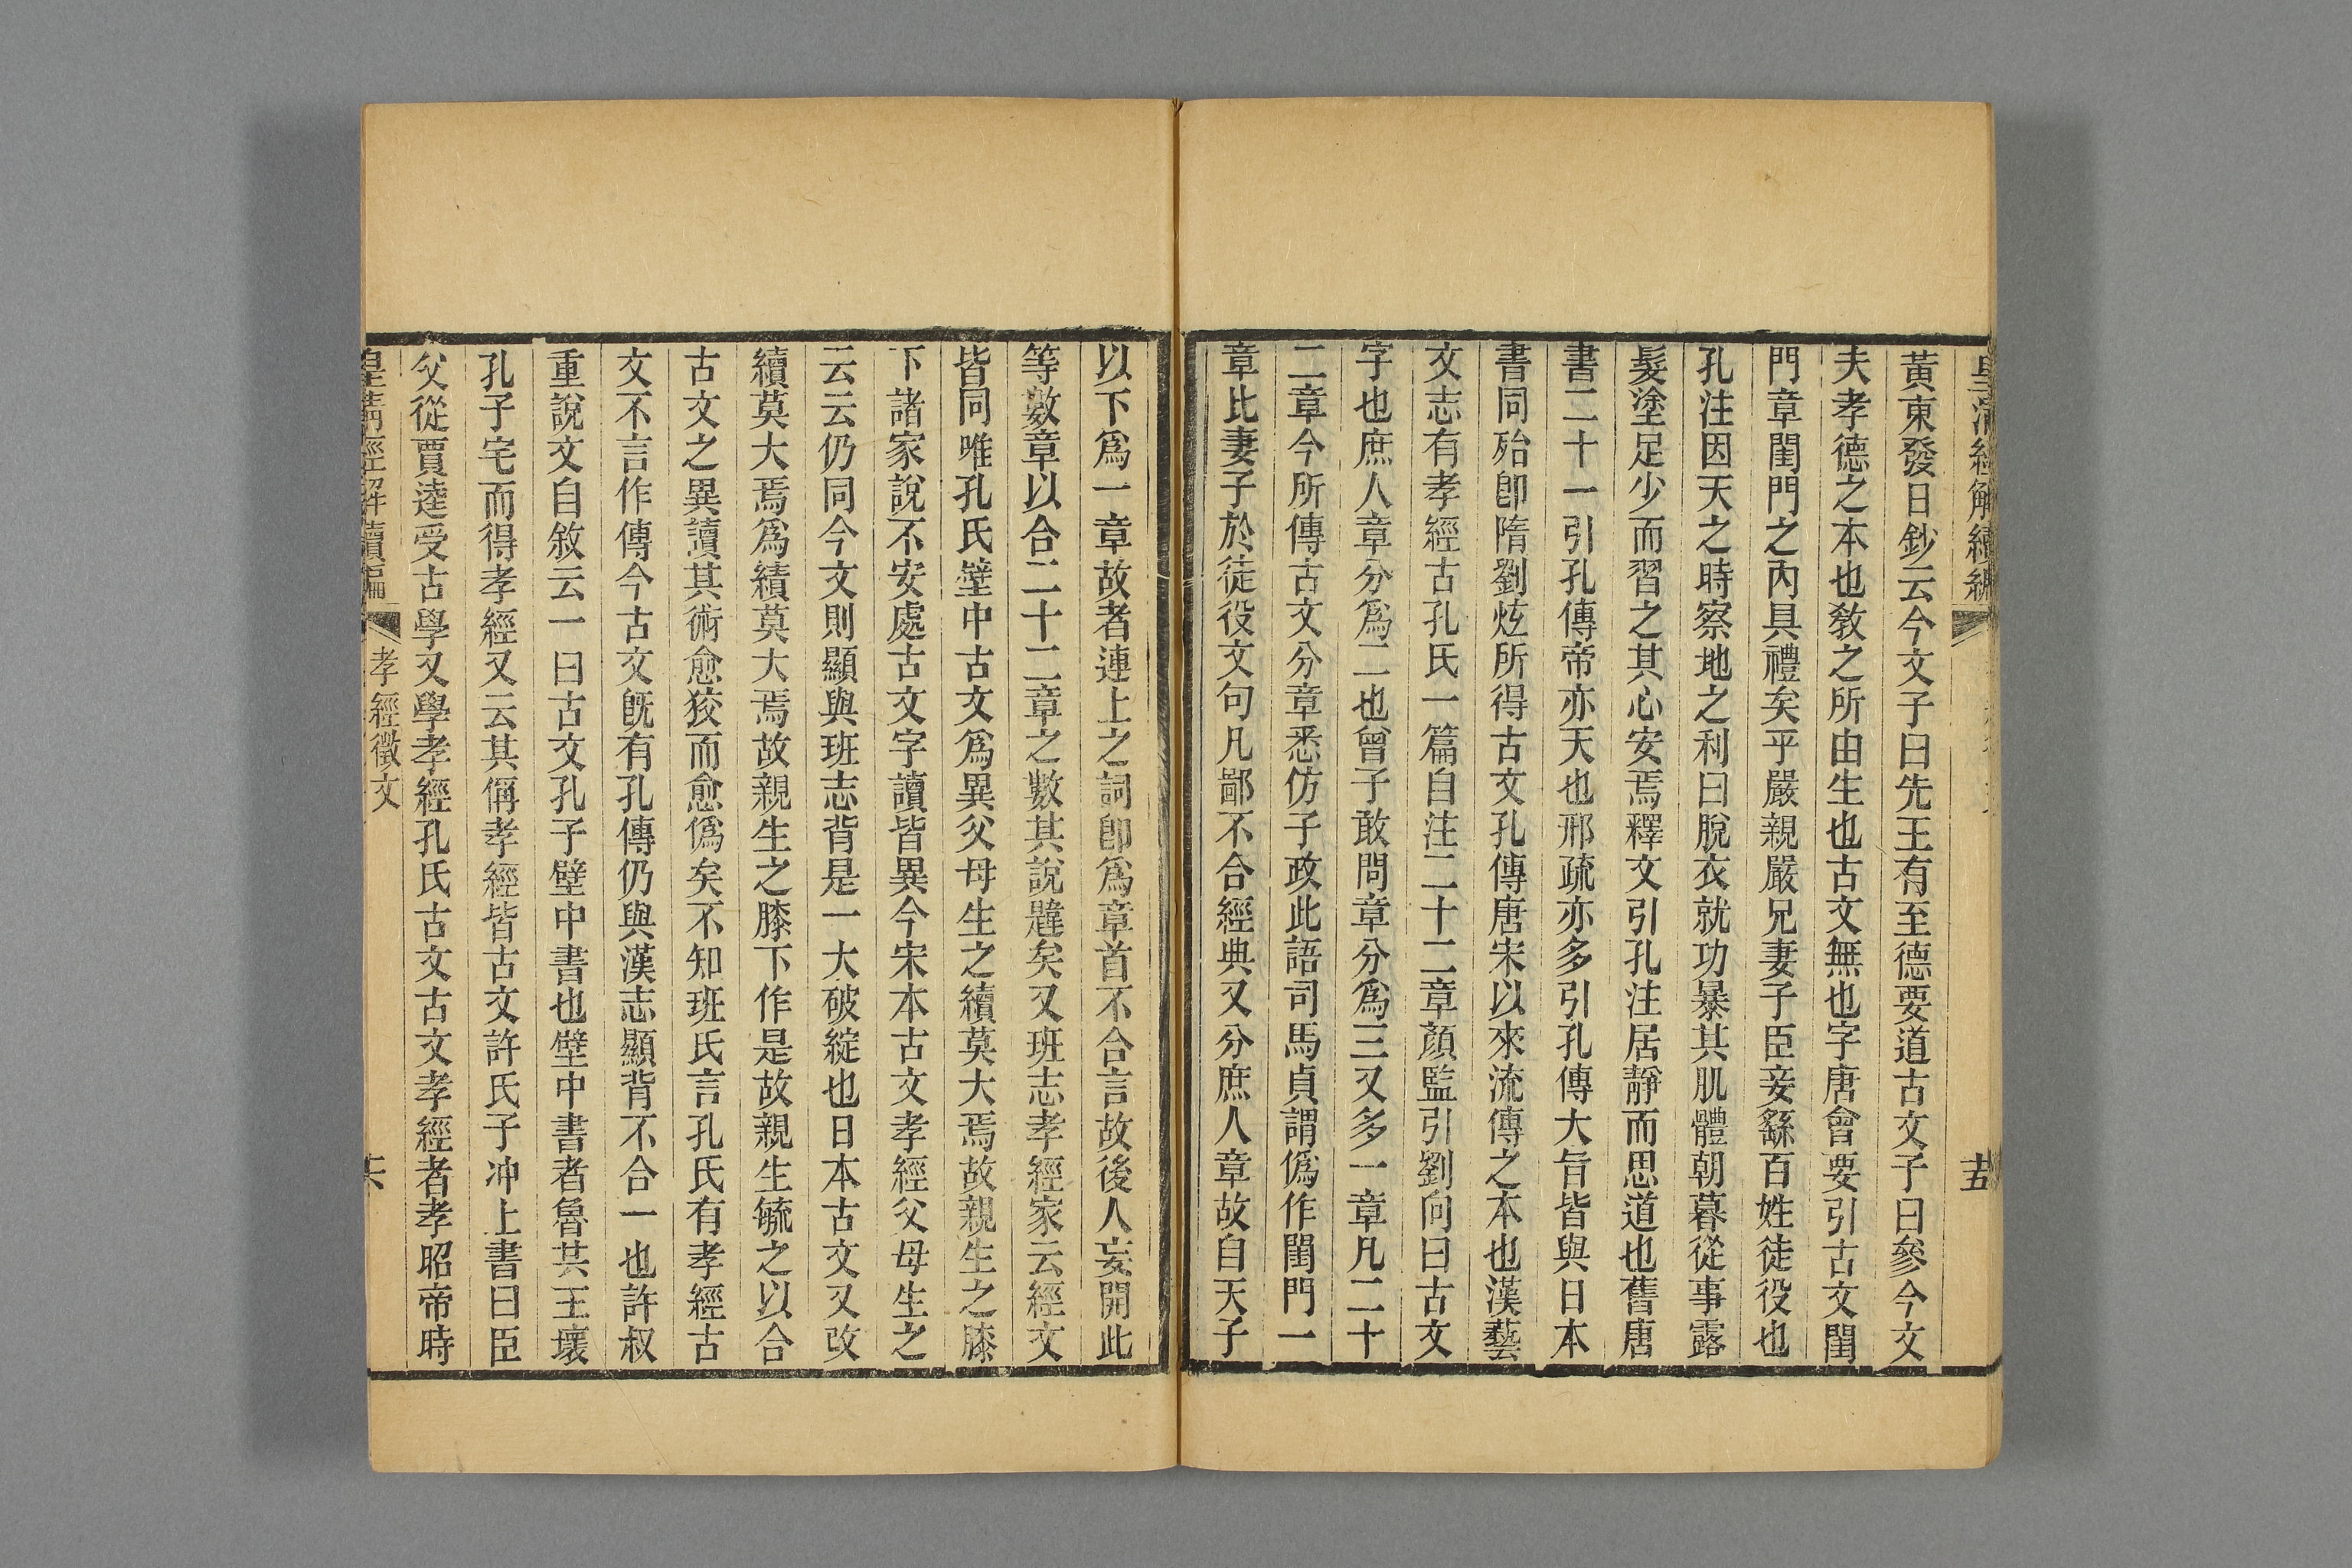 皇清經解續編
五
黃東發日鈔云今文子曰先王有至德要道古文子曰參今文
夫孝德之本也敎之所由生也古文無也字唐會要引古文閨
門章閨門之內具禮矣乎嚴親嚴兄妻子臣妾繇百姓徒役也
孔注因天之時察地之利曰脫衣就功暴其肌體朝暮從事露
髮塗足少而習之其心安焉釋文引孔注居靜而思道也舊唐
書二十一引孔傳帝亦天也邢疏亦多引孔傳大旨皆與日本
書同殆卽隋劉炫所得古文孔傳唐宋以來流傳之本也漢藝
文志有孝經古孔氏一篇自注二十二章顏監引劉向曰古文
字也庶人章分爲二也曾子敢問章分爲三又多一章凡二十
二章今所傳古文分章悉仿子政此語司馬貞謂僞作閨門一
章比妻子於徒役文句凡鄙不合經典又分庶人章故自天子
以下爲一章故者連上之詞卽爲章首不合言故後人妄開此
等數章以合二十二章之數其說韙矣又班志孝經家云經文
皆同唯孔氏壁中古文爲異父母生之續莫大焉故親生之膝
下諸家說不安處古文字讀皆異今宋本古文孝經父母生之
云云仍同今文則顯與班志背是一大破綻也日本古文又改
續莫大焉爲績莫大焉故親生之膝下作是故親生毓之以合
古文之異讀其術愈狡而愈僞矣不知班氏言孔氏有孝經古
文不言作傳今古文旣有孔傳仍與漢志顯背不合一也許叔
重說文自敘云一曰古文孔子壁中書也壁中書者魯共王壞
孔子宅而得孝經又云其偁孝經皆古文許氏子冲上書曰臣
父從賈逵受古學又學孝經孔氏古文古文孝經者孝昭帝時
皇淸經解續編
孝經徵文